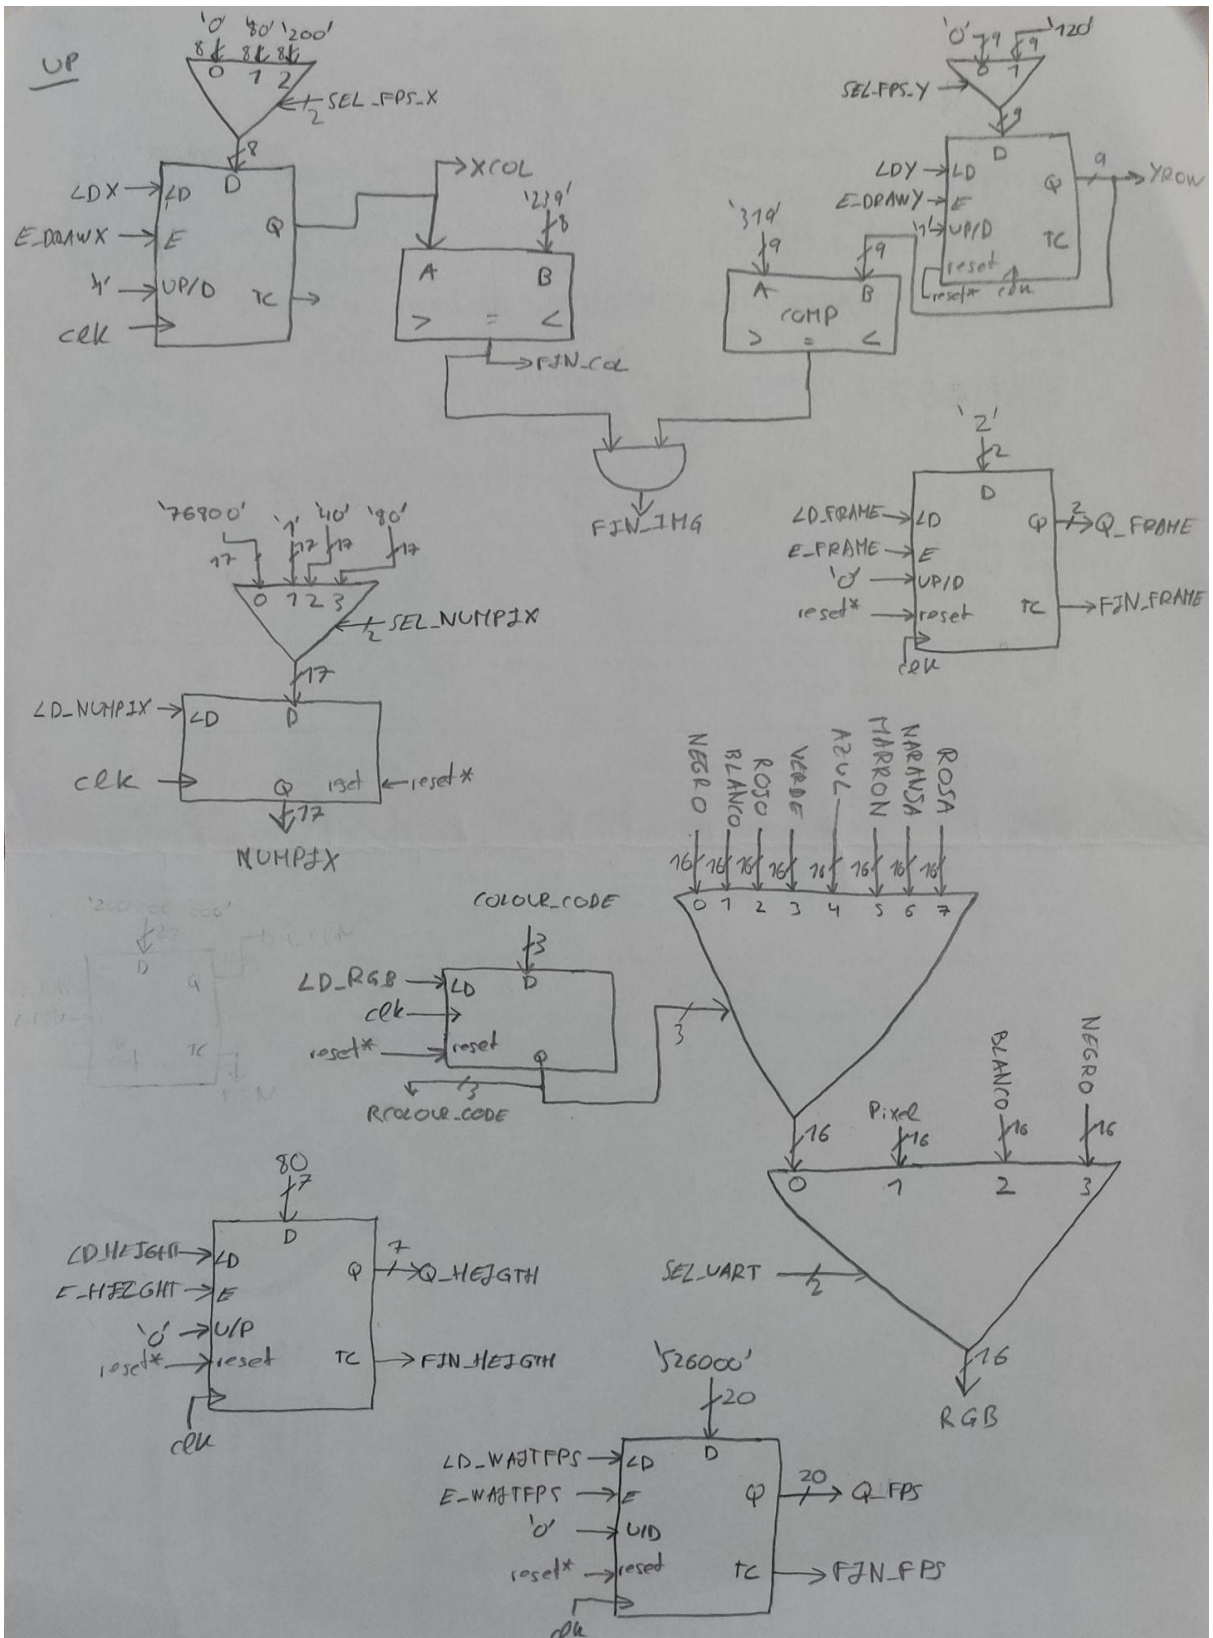 UP
'0' '80' '200'
8 8 8
0 1 2
SEL_FPS_X
2
8
LDX
LD
D
E_DRAWX
E
Q
'1'
UP/D
TC
clk
XCOL
'239'
8
A B
> = <
FIN_COL
'0' 9 9 '120'
0 1
SEL_FPS_Y
9
D
LDY
LD
Q
9
YROW
E_DRAWY
E
'1'
UP/D
TC
reset
reset*
clk
'319'
9 9
A B
COMP
> = <
FIN_IMG
'2'
2
D
LD_FRAME
LD
Q
2
Q_FRAME
E_FRAME
E
'0'
UP/D
reset*
reset
TC
FIN_FRAME
clk
'76800' '1' '40' '80'
17 17 17 17
0 1 2 3
SEL_NUMPIX
2
17
LD_NUMPIX
LD
D
clk
Q
reset
reset*
17
NUMPIX
NEGRO
BLANCO
ROJO
VERDE
AZUL
MARRON
NARANJA
ROSA
16 16 16 16 16 16 16 16
0 1 2 3 4 5 6 7
COLOUR_CODE
3
LD_RGB
LD
D
clk
reset*
reset
Q
3
RCOLOUR_CODE
3
D
Q
TC
16
Pixel
16
BLANCO
16
NEGRO
16
0 1 2 3
SEL_UART
2
16
RGB
80
7
D
LD_HEIGHT
LD
Q
7
Q_HEIGTH
E_HEIGHT
E
'0'
U/P
reset*
reset
TC
FIN_HEIGTH
clk
'526000'
20
D
LD_WAITFPS
LD
E_WAITFPS
E
Q
20
Q_FPS
'0'
U/D
reset*
reset
TC
FIN_FPS
clk